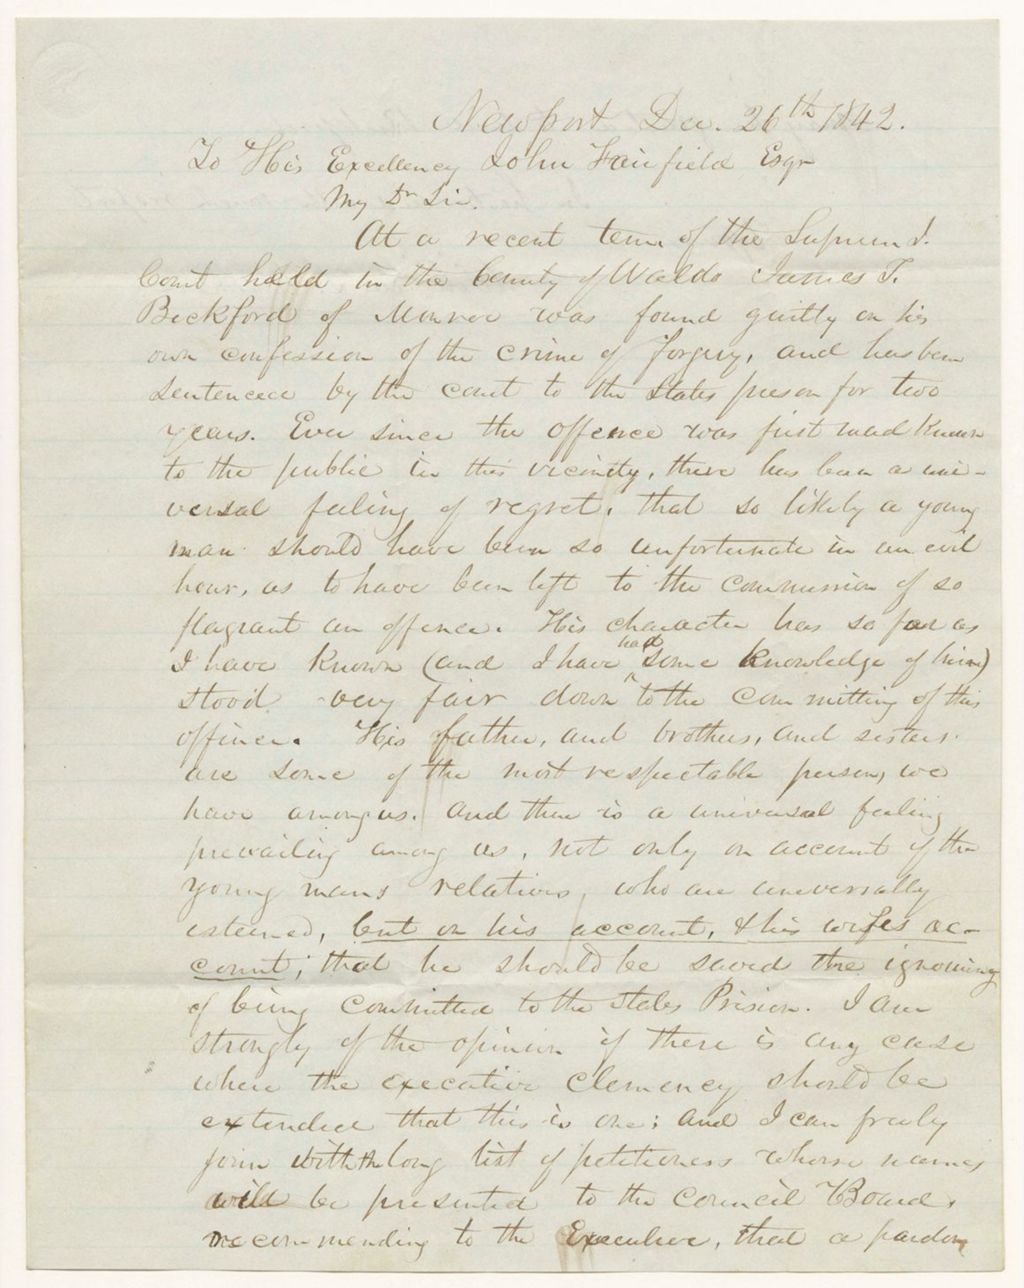 Newport Dec. 26th 1842.
To His Excellency John Fairfield Esqr
My Dr Sir.
At a recent term of the Suprem J.
Court held in the County of Waldo James T.
Beckford of Monroe was found guilty on his
own confession of the crime of forgery, and has been
sentenced by the court to the States prison for two
years. Ever since the offence was first mad known
to the public in this vicinity, there has been a uni-
versal feeling of regret, that so likely a young
man should have been so unfortunate in an evil
hour, as to have been left to the commission of so
flagrant an offence. His character has so far as
I have known (and I have had some knowledge of him)
stood very fair down to the committing of this
offince. His father, and brothers, and sisters
are some of the most respectable person, we
have among us. and there is a universal feeling
prevailing among us, not only on account of the
young mans relatives, who are universally
esteemed, but on his account, & his wifes ac-
count; that he should be saved the ignominy
of being committed to the states Prison. I am
strongly of the opinion if there is any case
where the executive clemency should be
extended that this is one; and I can freely
join with the long list of petitioners whose names
will be presented to the Council Board,
recommending to the Executive, that a pardon